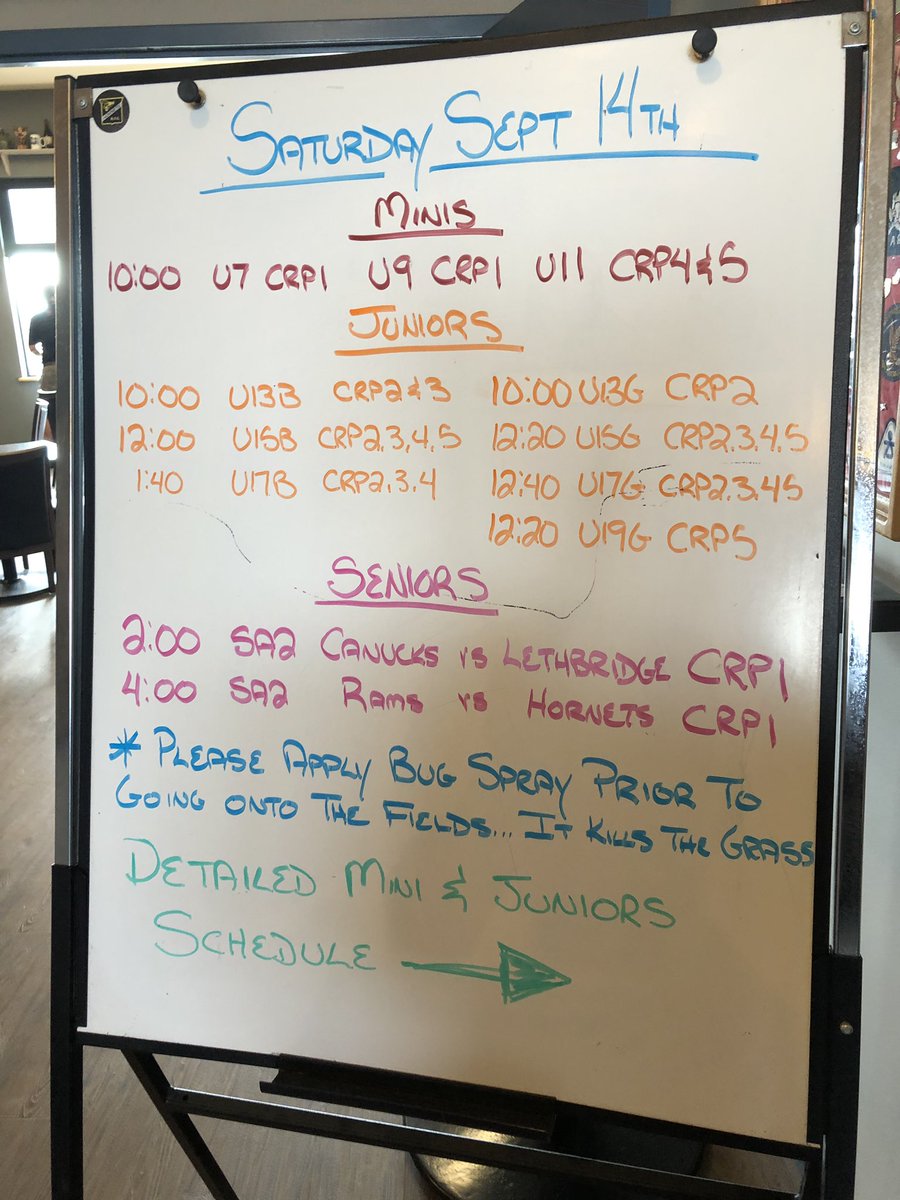 SATURDAY SEPT 14TH
MINIS
10:00 U7 CRP1 U9 CRP1 U11 CRP4&5
JUNIORS
10:00 U13B CRP2&3 10:00 U13G CRP2
12:00 U15B CRP2,3,4,5 12:20 U15G CRP2,3,4,5
1:40 U17B CRP2,3,4 12:40 U17G CRP2,3,45
12:20 U19G CRP5
SENIORS
2:00 SA2 CANUCKS vs LETHBRIDGE CRP1
4:00 SA2 RAMS vs HORNETS CRP1
* PLEASE APPLY BUG SPRAY PRIOR TO
GOING ONTO THE FIELDS... IT KILLS THE GRASS
DETAILED MINI & JUNIORS
SCHEDULE →